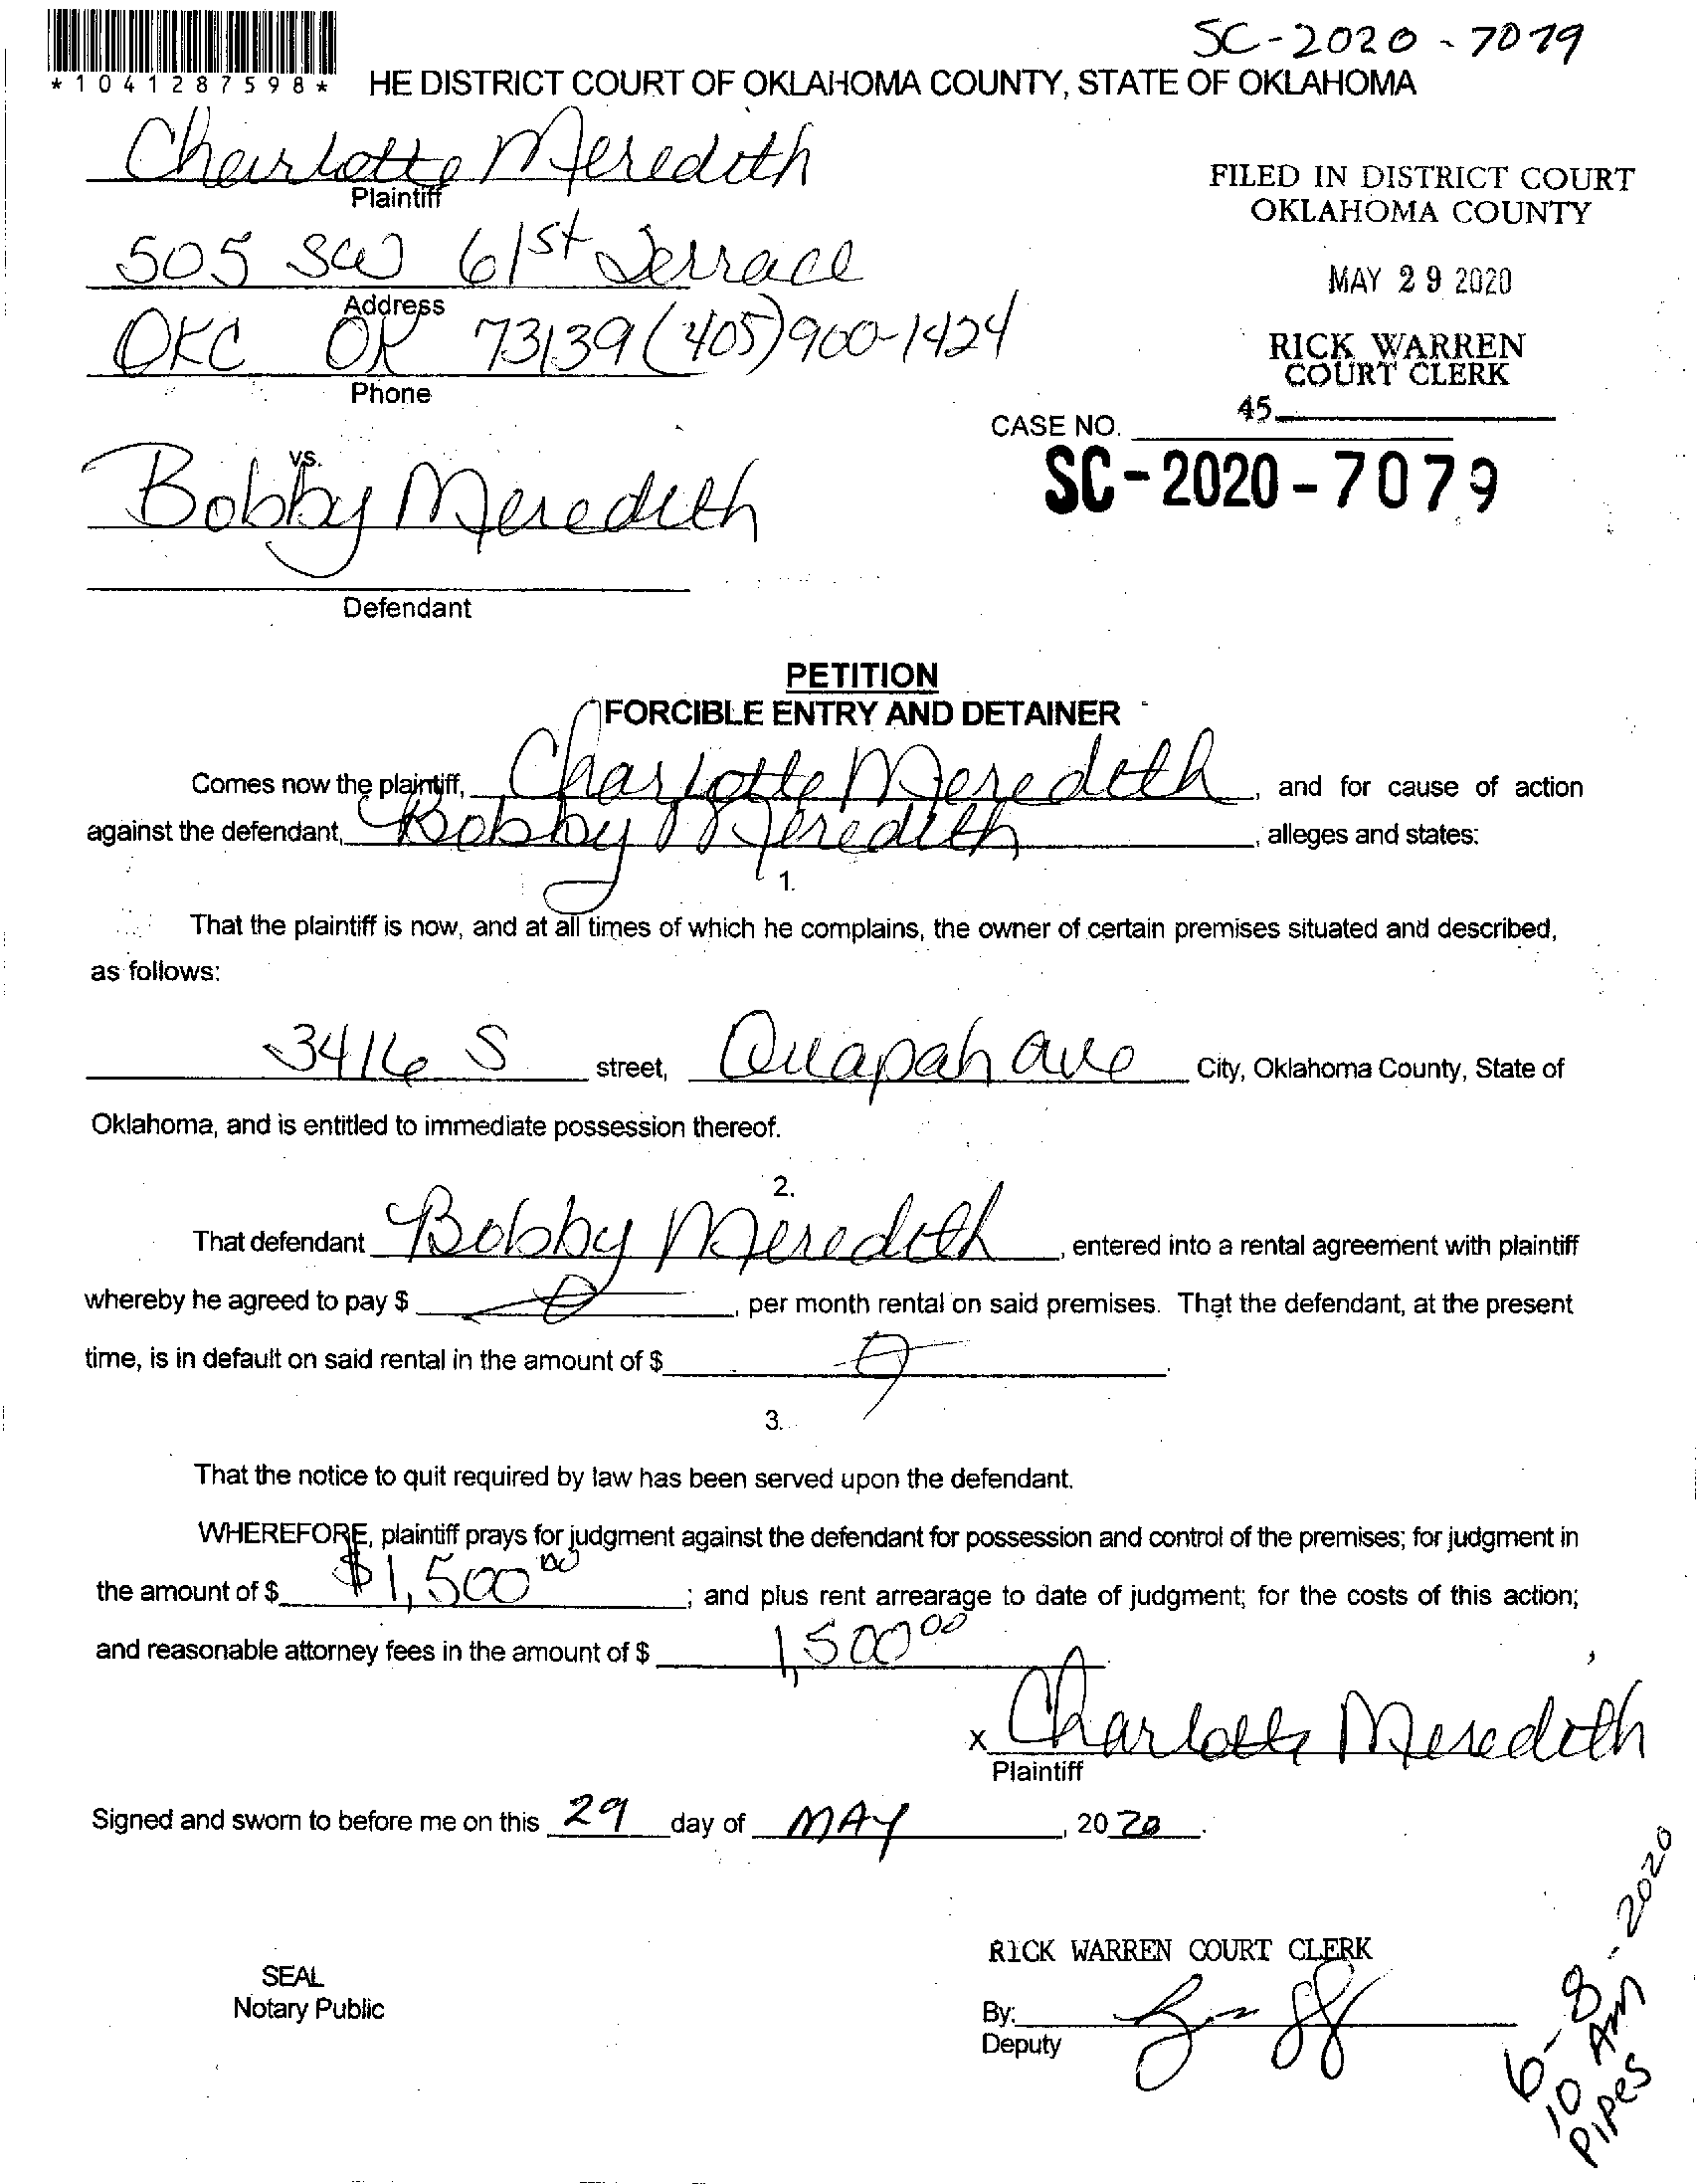 SC-2020-7079
*1041287598*
HE DISTRICT COURT OF OKLAHOMA COUNTY, STATE OF OKLAHOMA
Charlotte Meredith
Plaintiff
FILED IN DISTRICT COURT
OKLAHOMA COUNTY
505 SW 61st Terrace
Address
MAY 29 2020
OKC OK 73139 (405)900-1424
Phone
RICK WARREN
COURT CLERK
45
CASE NO.
SC-2020-7079
vs.
Bobby Meredith
Defendant
PETITION
FORCIBLE ENTRY AND DETAINER
Comes now the plaintiff, Charlotte Meredith, and for cause of action
against the defendant, Bobby Meredith, alleges and states:
1.
That the plaintiff is now, and at all times of which he complains, the owner of certain premises situated and described,
as follows:
3416 S street, Quapah ave City, Oklahoma County, State of
Oklahoma, and is entitled to immediate possession thereof.
2.
That defendant Bobby Meredith, entered into a rental agreement with plaintiff
whereby he agreed to pay $ 0, per month rental on said premises. That the defendant, at the present
time, is in default on said rental in the amount of $ 0.
3.
That the notice to quit required by law has been served upon the defendant.
WHEREFORE, plaintiff prays for judgment against the defendant for possession and control of the premises; for judgment in
the amount of $ $1,500 00; and plus rent arrearage to date of judgment; for the costs of this action;
and reasonable attorney fees in the amount of $ 1,500 00
x Charlotte Meredith
Plaintiff
Signed and sworn to before me on this 29 day of MAY, 2020.
RICK WARREN COURT CLERK
SEAL
Notary Public
By:
Deputy
6-8-2020
10 Am
Pipes